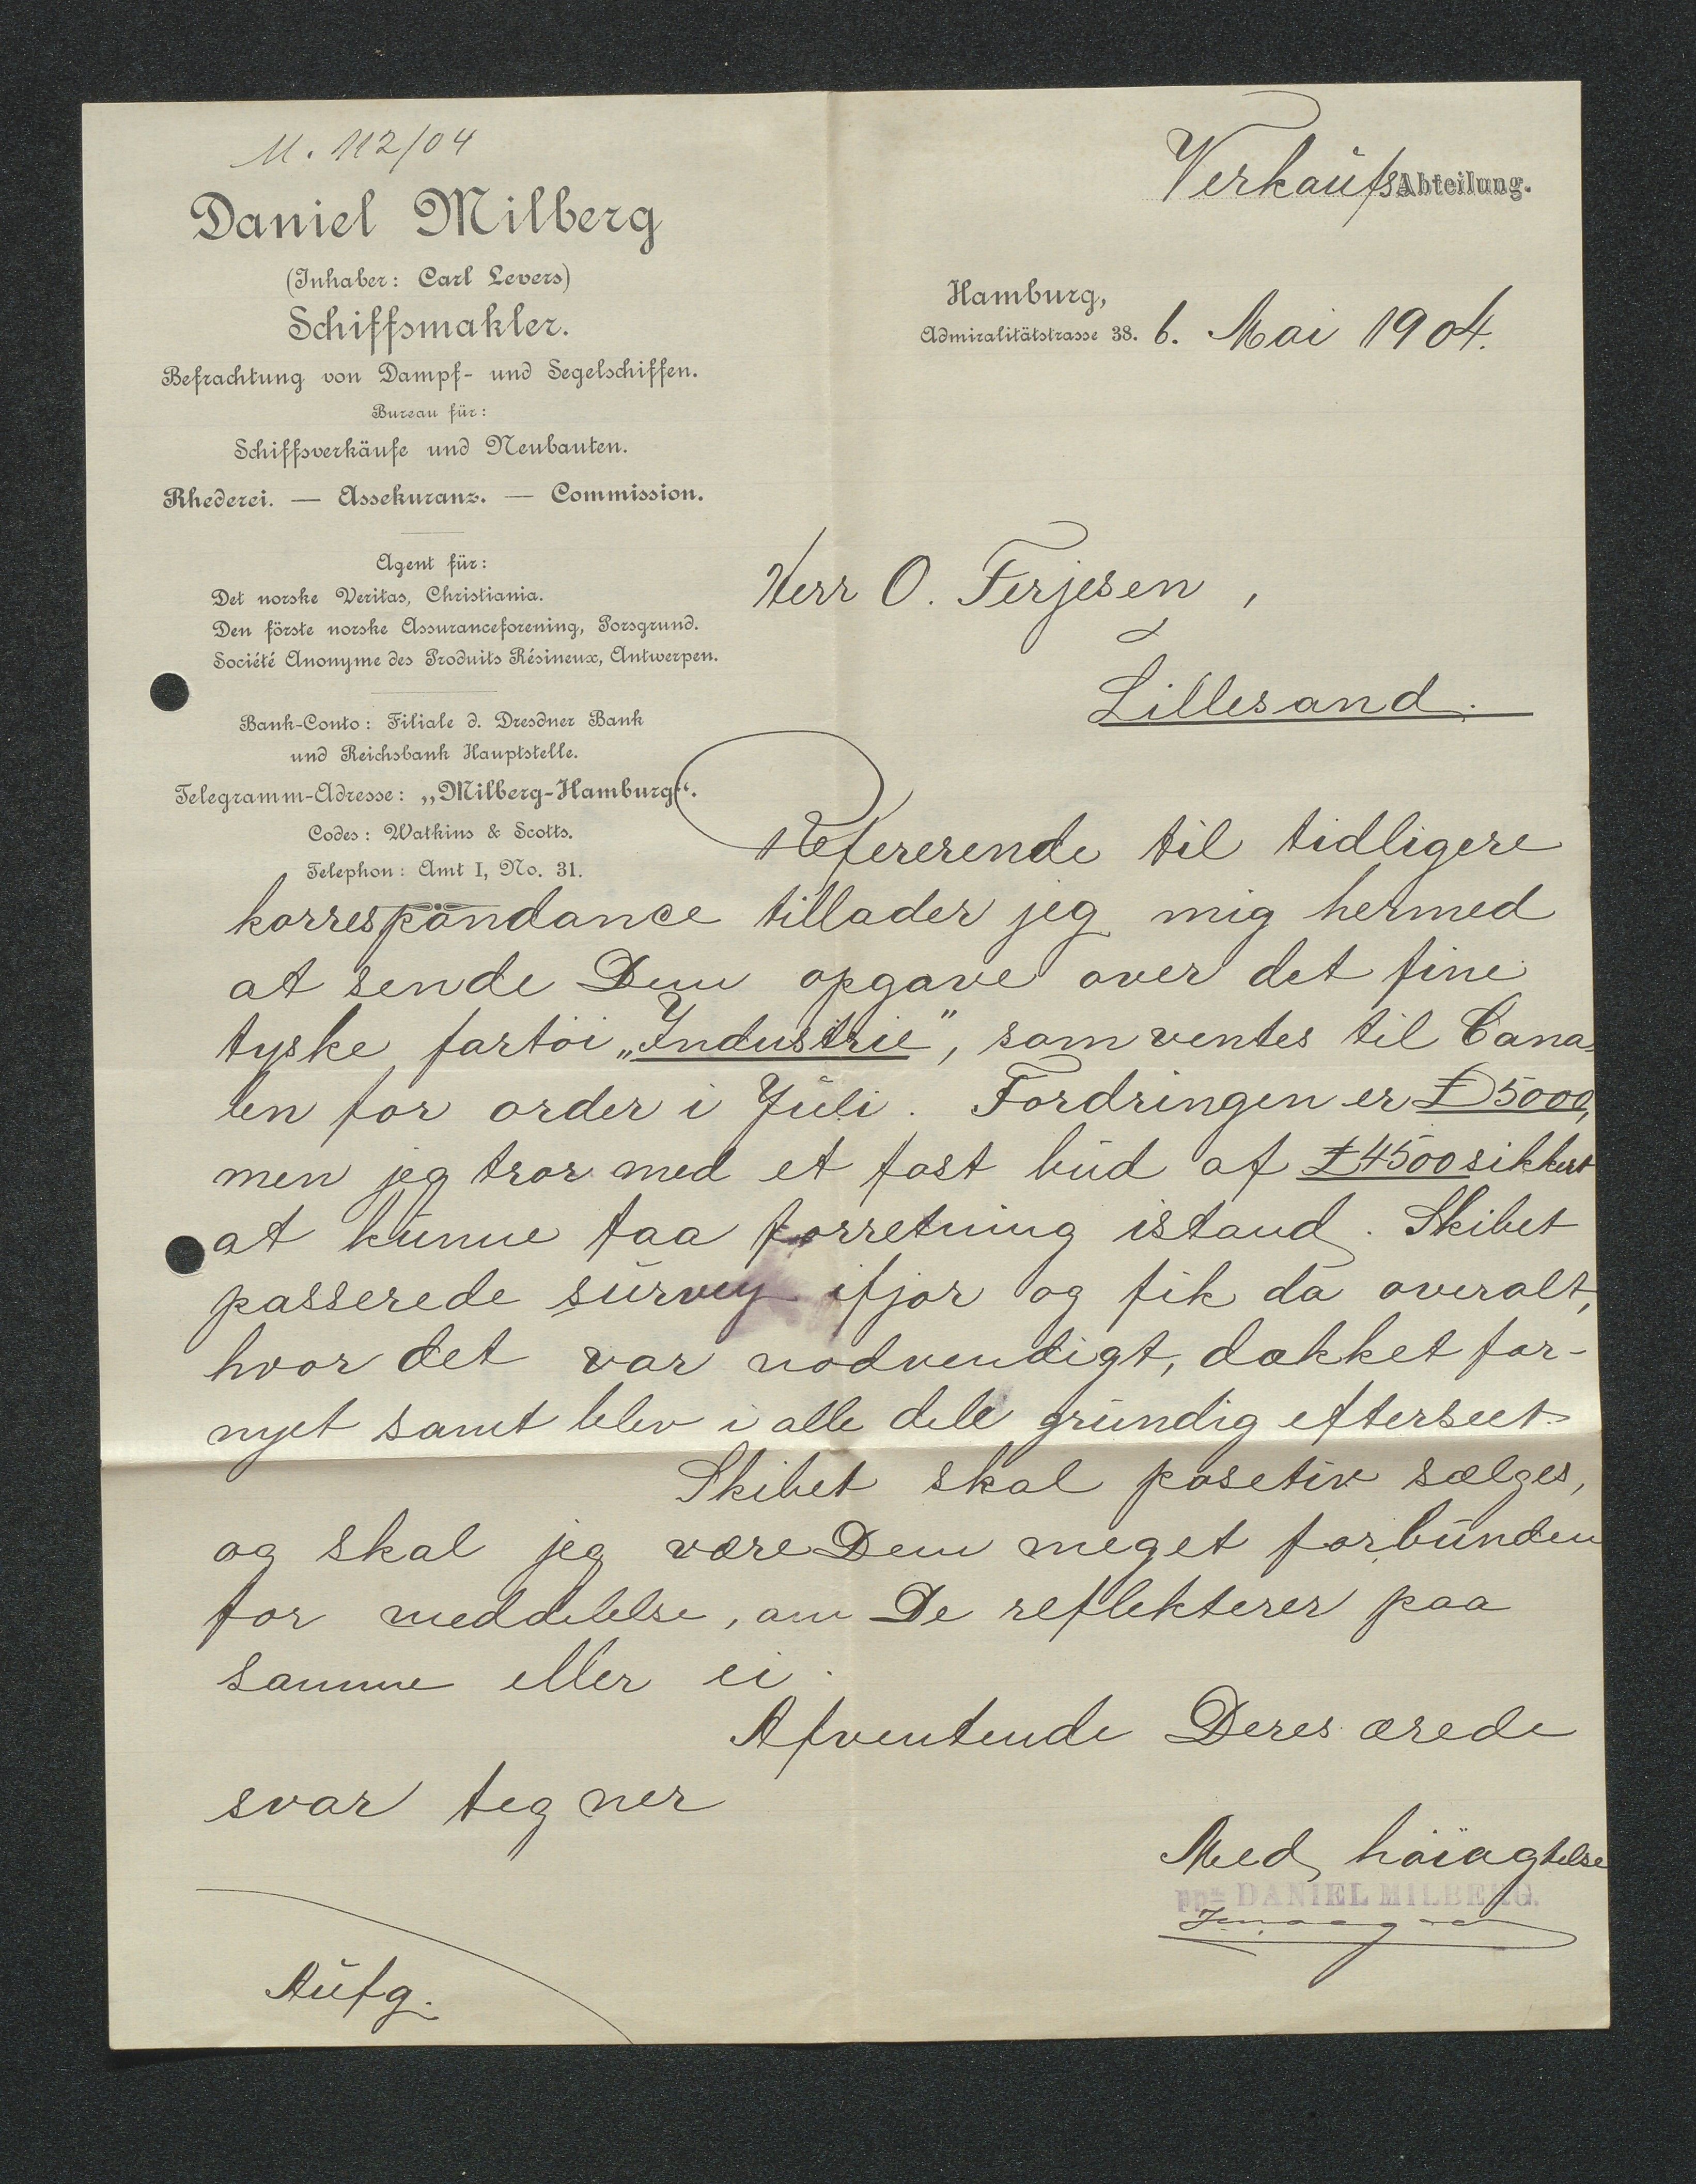 M. 112/04
Daniel Milberg
(Inhaber: Carl Levers)
Schiffsmakler.
Befrachtung von Dampf- und Segelschiffen.
Bureau für:
Schiffsverkäufe und Neubauten.
Rhederei. — Assekuranz. — Commission.
Agent für:
Det norske Veritas, Christiania.
Den förste norske Assuranceforening, Porsgrund.
Société Anonyme des Produits Résineux, Antwerpen.
Bank-Conto: Filiale d. Dresdner Bank
und Reichsbank Hauptstelle.
Telegramm-Adresse: „Milberg-Hamburg“.
Codes: Watkins & Scotts.
Telephon: Amt I, No. 31.
Verkaufs Abteilung.
Hamburg,
Admiralitätstrasse 38. 6. Mai 1904.
Herr O. Terjesen,
Lillesand.
Refererende til tidligere
korrespondance tillader jeg mig hermed
at sende Dem opgave over det fine
tyske fartöi „Industrie", som ventes til Cana-
len for order i Juli. Fordringen er £ 5000,
men jeg tror med et fast bud af £ 4500 sikkert
at kunne faa forretning istand. Skibet
passerede survey ifjor og fik da overalt,
hvor det var nödvendigt, dækket for-
nyet samt blev i alle dele grundig efterseet.
Skibet skal posetiv sælges,
og skal jeg være Dem meget forbunden
for meddelelse, om De reflekterer paa
samme eller ei.
Afventende Deres ærede
svar tegner
Med höiagtelse
ppa DANIEL MILBERG.
Aufg.